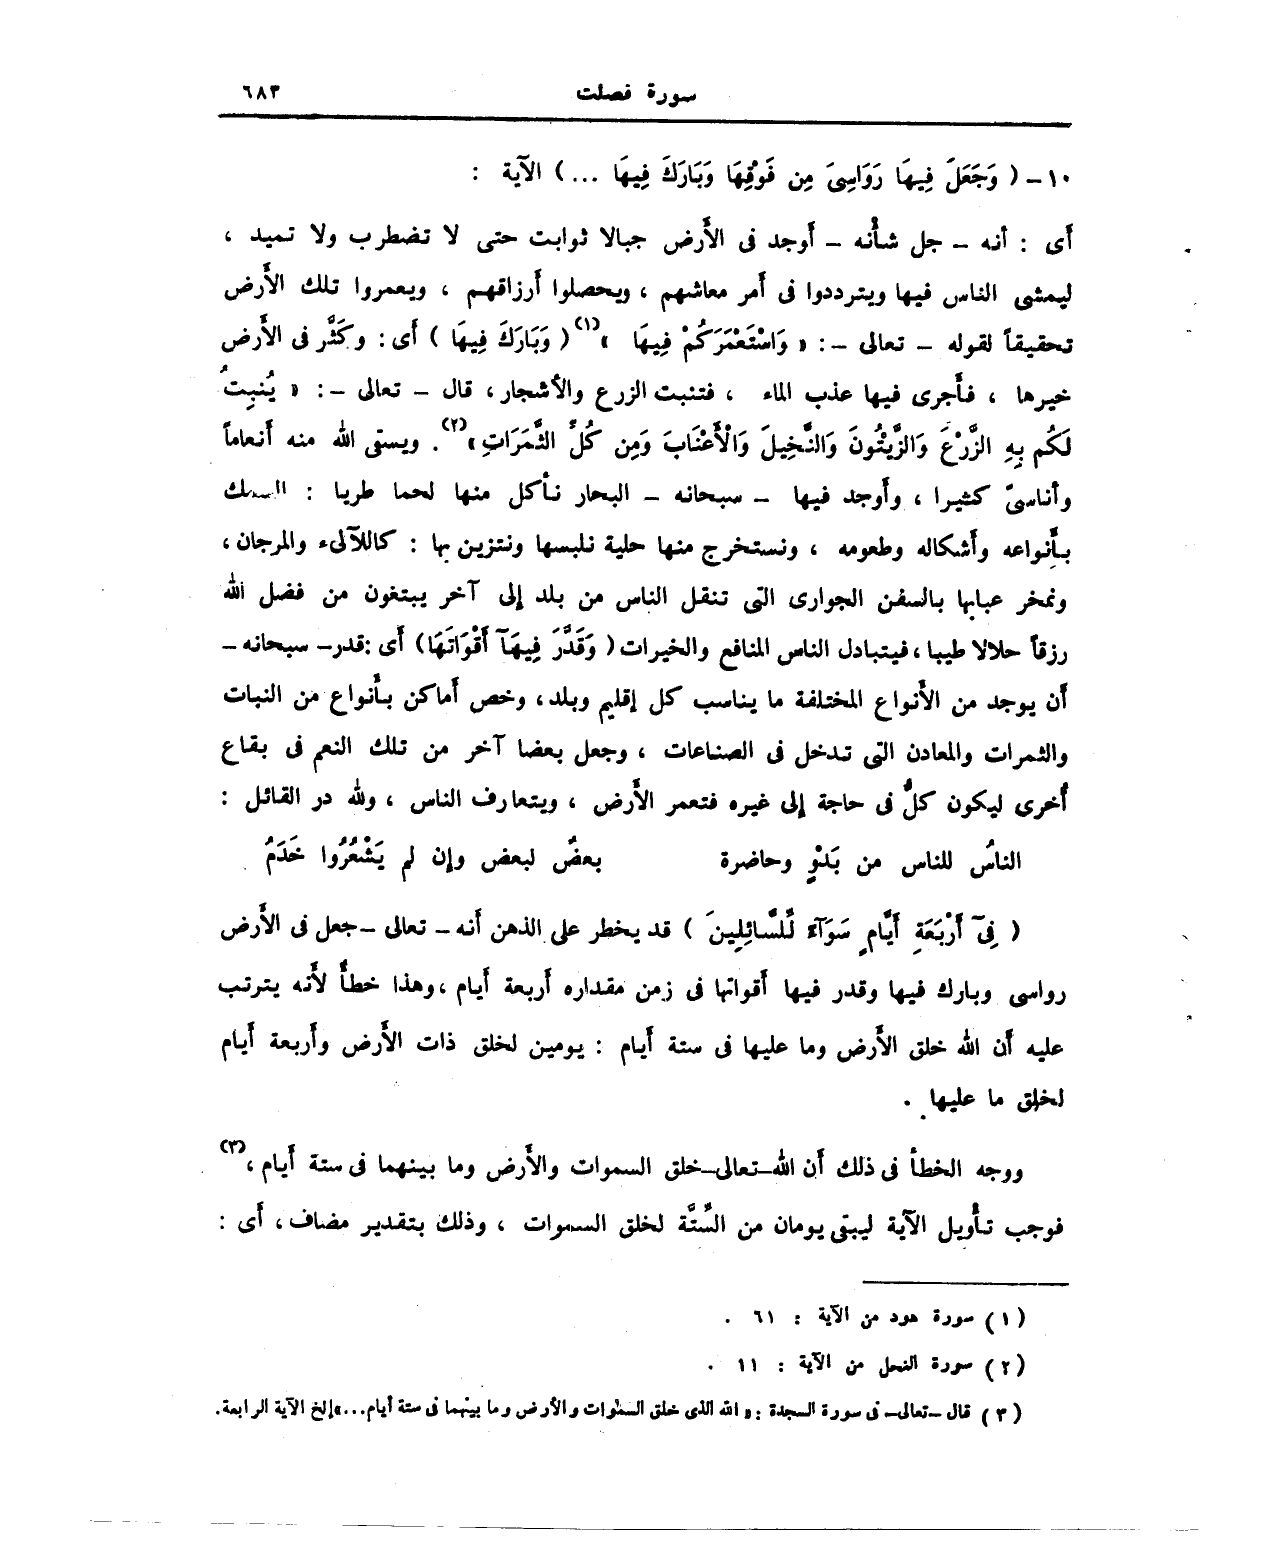 سورة فصلت
٦٨٣
١٠ـ ( وَجَعَلَ فِيهَا رَوَاسِىَ مِن فَوْقِهَا وَبَارَكَ فِيهَا ... ) الآية :
أى : أنه ـ جل شأنه ـ أوجد فى الأرض جبالا ثوابت حتى لا تضطرب ولا تميد ،
ليمشى الناس فيها ويترددوا فى أمر معاشهم ، ويحصلوا أرزاقهم ، ويعمروا تلك الأرض
تحقيقاً لقوله ـ تعالى ـ : « وَاسْتَعْمَرَكُمْ فِيهَا »(١) ( وَبَارَكَ فِيهَا ) أى : وكَثَّر فى الأرض
خيرها ، فأجرى فيها عذب الماء ، فتنبت الزرع والأشجار ، قال ـ تعالى ـ : « يُنبِتُ
لَكُم بِهِ الزَّرْعَ وَالزَّيْتُونَ وَالنَّخِيلَ وَالْأَعْنَابَ وَمِن كُلِّ الثَّمَرَاتِ »(٢) . ويسقى الله منه أنعاماً
وأناسىّ كثيرا ، وأوجد فيها ـ سبحانه ـ البحار نأكل منها لحما طريا : السمك
بأنواعه وأشكاله وطعومه ، ونستخرج منها حلية نلبسها ونتزين بها : كاللآلىء والمرجان ،
ونمخر عبابها بالسفن الجوارى التى تنقل الناس من بلد إلى آخر يبتغون من فضل الله
رزقاً حلالا طيبا ، فيتبادل الناس المنافع والخيرات ( وَقَدَّرَ فِيهَآ أَقْوَاتَهَا ) أى : قدر ـ سبحانه ـ
أن يوجد من الأنواع المختلفة ما يناسب كل إقليم وبلد ، وخص أماكن بأنواع من النبات
والثمرات والمعادن التى تدخل فى الصناعات ، وجعل بعضا آخر من تلك النعم فى بقاع
أخرى ليكون كلٌّ فى حاجة إلى غيره فتعمر الأرض ، ويتعارف الناس ، ولله در القائل :
الناسُ للناس من بَدْوٍ وحاضرة بعضٌ لبعض وإن لم يَشْعُرُوا خَدَمُ
( فِىٓ أَرْبَعَةِ أَيَّامٍ سَوَآءً لِّلسَّائِلِينَ ) قد يخطر على الذهن أنه ـ تعالى ـ جعل فى الأرض
رواسى وبارك فيها وقدر فيها أقواتها فى زمن مقداره أربعة أيام ، وهذا خطأٌ لأنه يترتب
عليه أن الله خلق الأرض وما عليها فى ستة أيام : يومين لخلق ذات الأرض وأربعة أيام
لخلق ما عليها .
ووجه الخطأ فى ذلك أن الله ـ تعالى ـ خلق السموات والأرض وما بينهما فى ستة أيام ،(٣)
فوجب تأويل الآية ليبقى يومان من السِّتَّة لخلق السموات ، وذلك بتقدير مضاف ، أى :
(١) سورة هود من الآية : ٦١ .
(٢) سورة النحل من الآية : ١١ .
(٣) قال ـ تعالى ـ فى سورة السجدة : « الله الذى خلق السموات والأرض وما بينهما فى ستة أيام ... » إلخ الآية الرابعة .